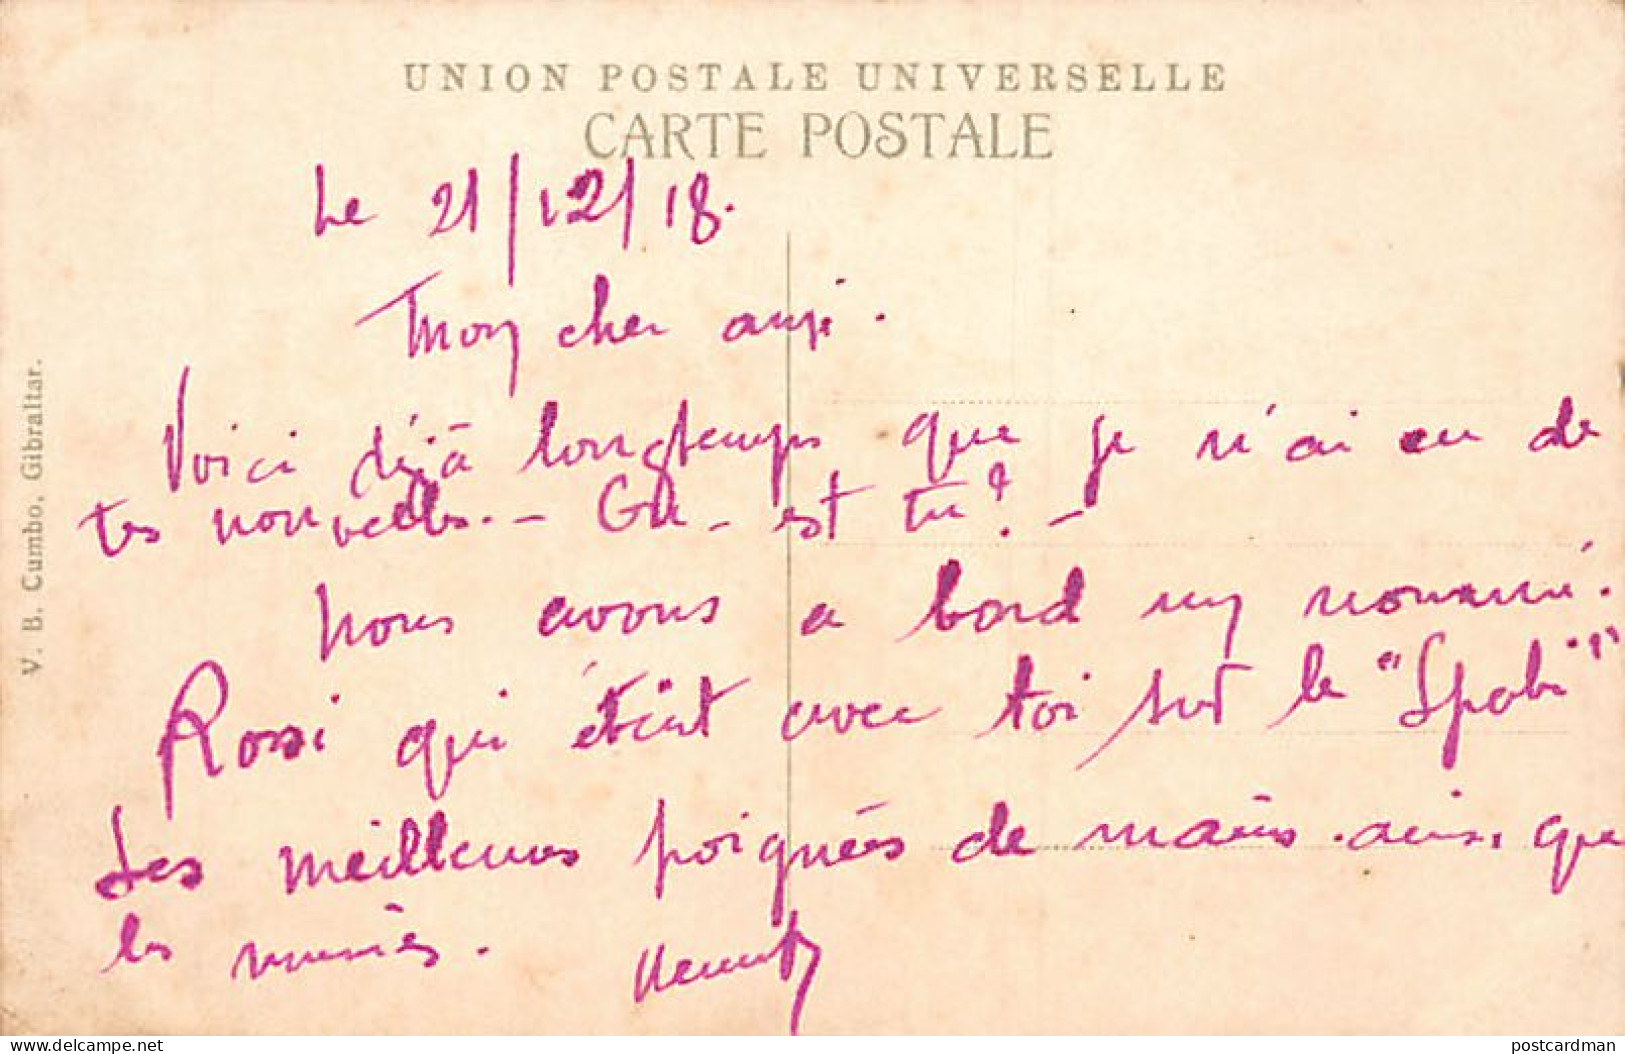 UNION POSTALE UNIVERSELLE
CARTE POSTALE
Le 21/12/18.
Mon cher ami.
Voici déjà longtemps que je n'ai eu de
tes nouvelles. - Où - est tu? -
Nous avons a bord un nommé.
Rossi qui était avec toi sur le "Spahi"
Ses meilleures poignées de mains. ainsi que
les miennes.
V. B. Cumbo, Gibraltar.
delcampe.net
postcardman